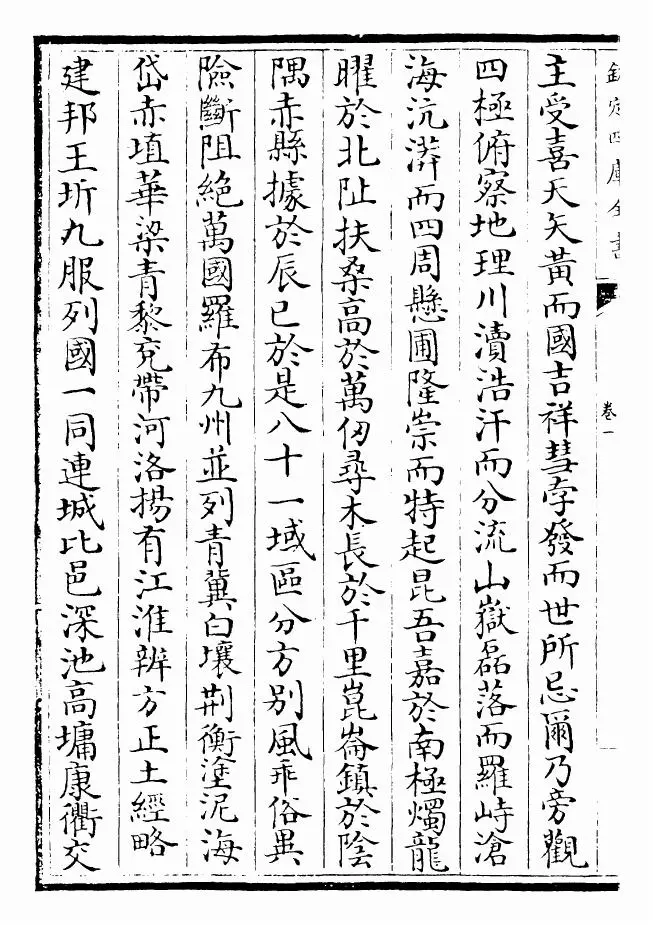 欽定四庫全書
卷一
主受喜天矢黃而國吉祥彗孛發而世所忌爾乃旁觀
四極俯察地理川瀆浩汗而分流山嶽磊落而羅峙滄
海沆漭而四周懸圃隆崇而特起昆吾嘉於南極燭龍
曜於北阯扶桑高於萬仞尋木長於千里崑崙鎮於陰
隅赤縣據於辰巳於是八十一域區分方别風乖俗異
險斷阻絕萬國羅布九州並列青冀白壤荆衡塗泥海
岱赤埴華梁青黎兗帶河洛揚有江淮辨方正土經略
建邦王圻九服列國一同連城比邑深池高墉康衢交